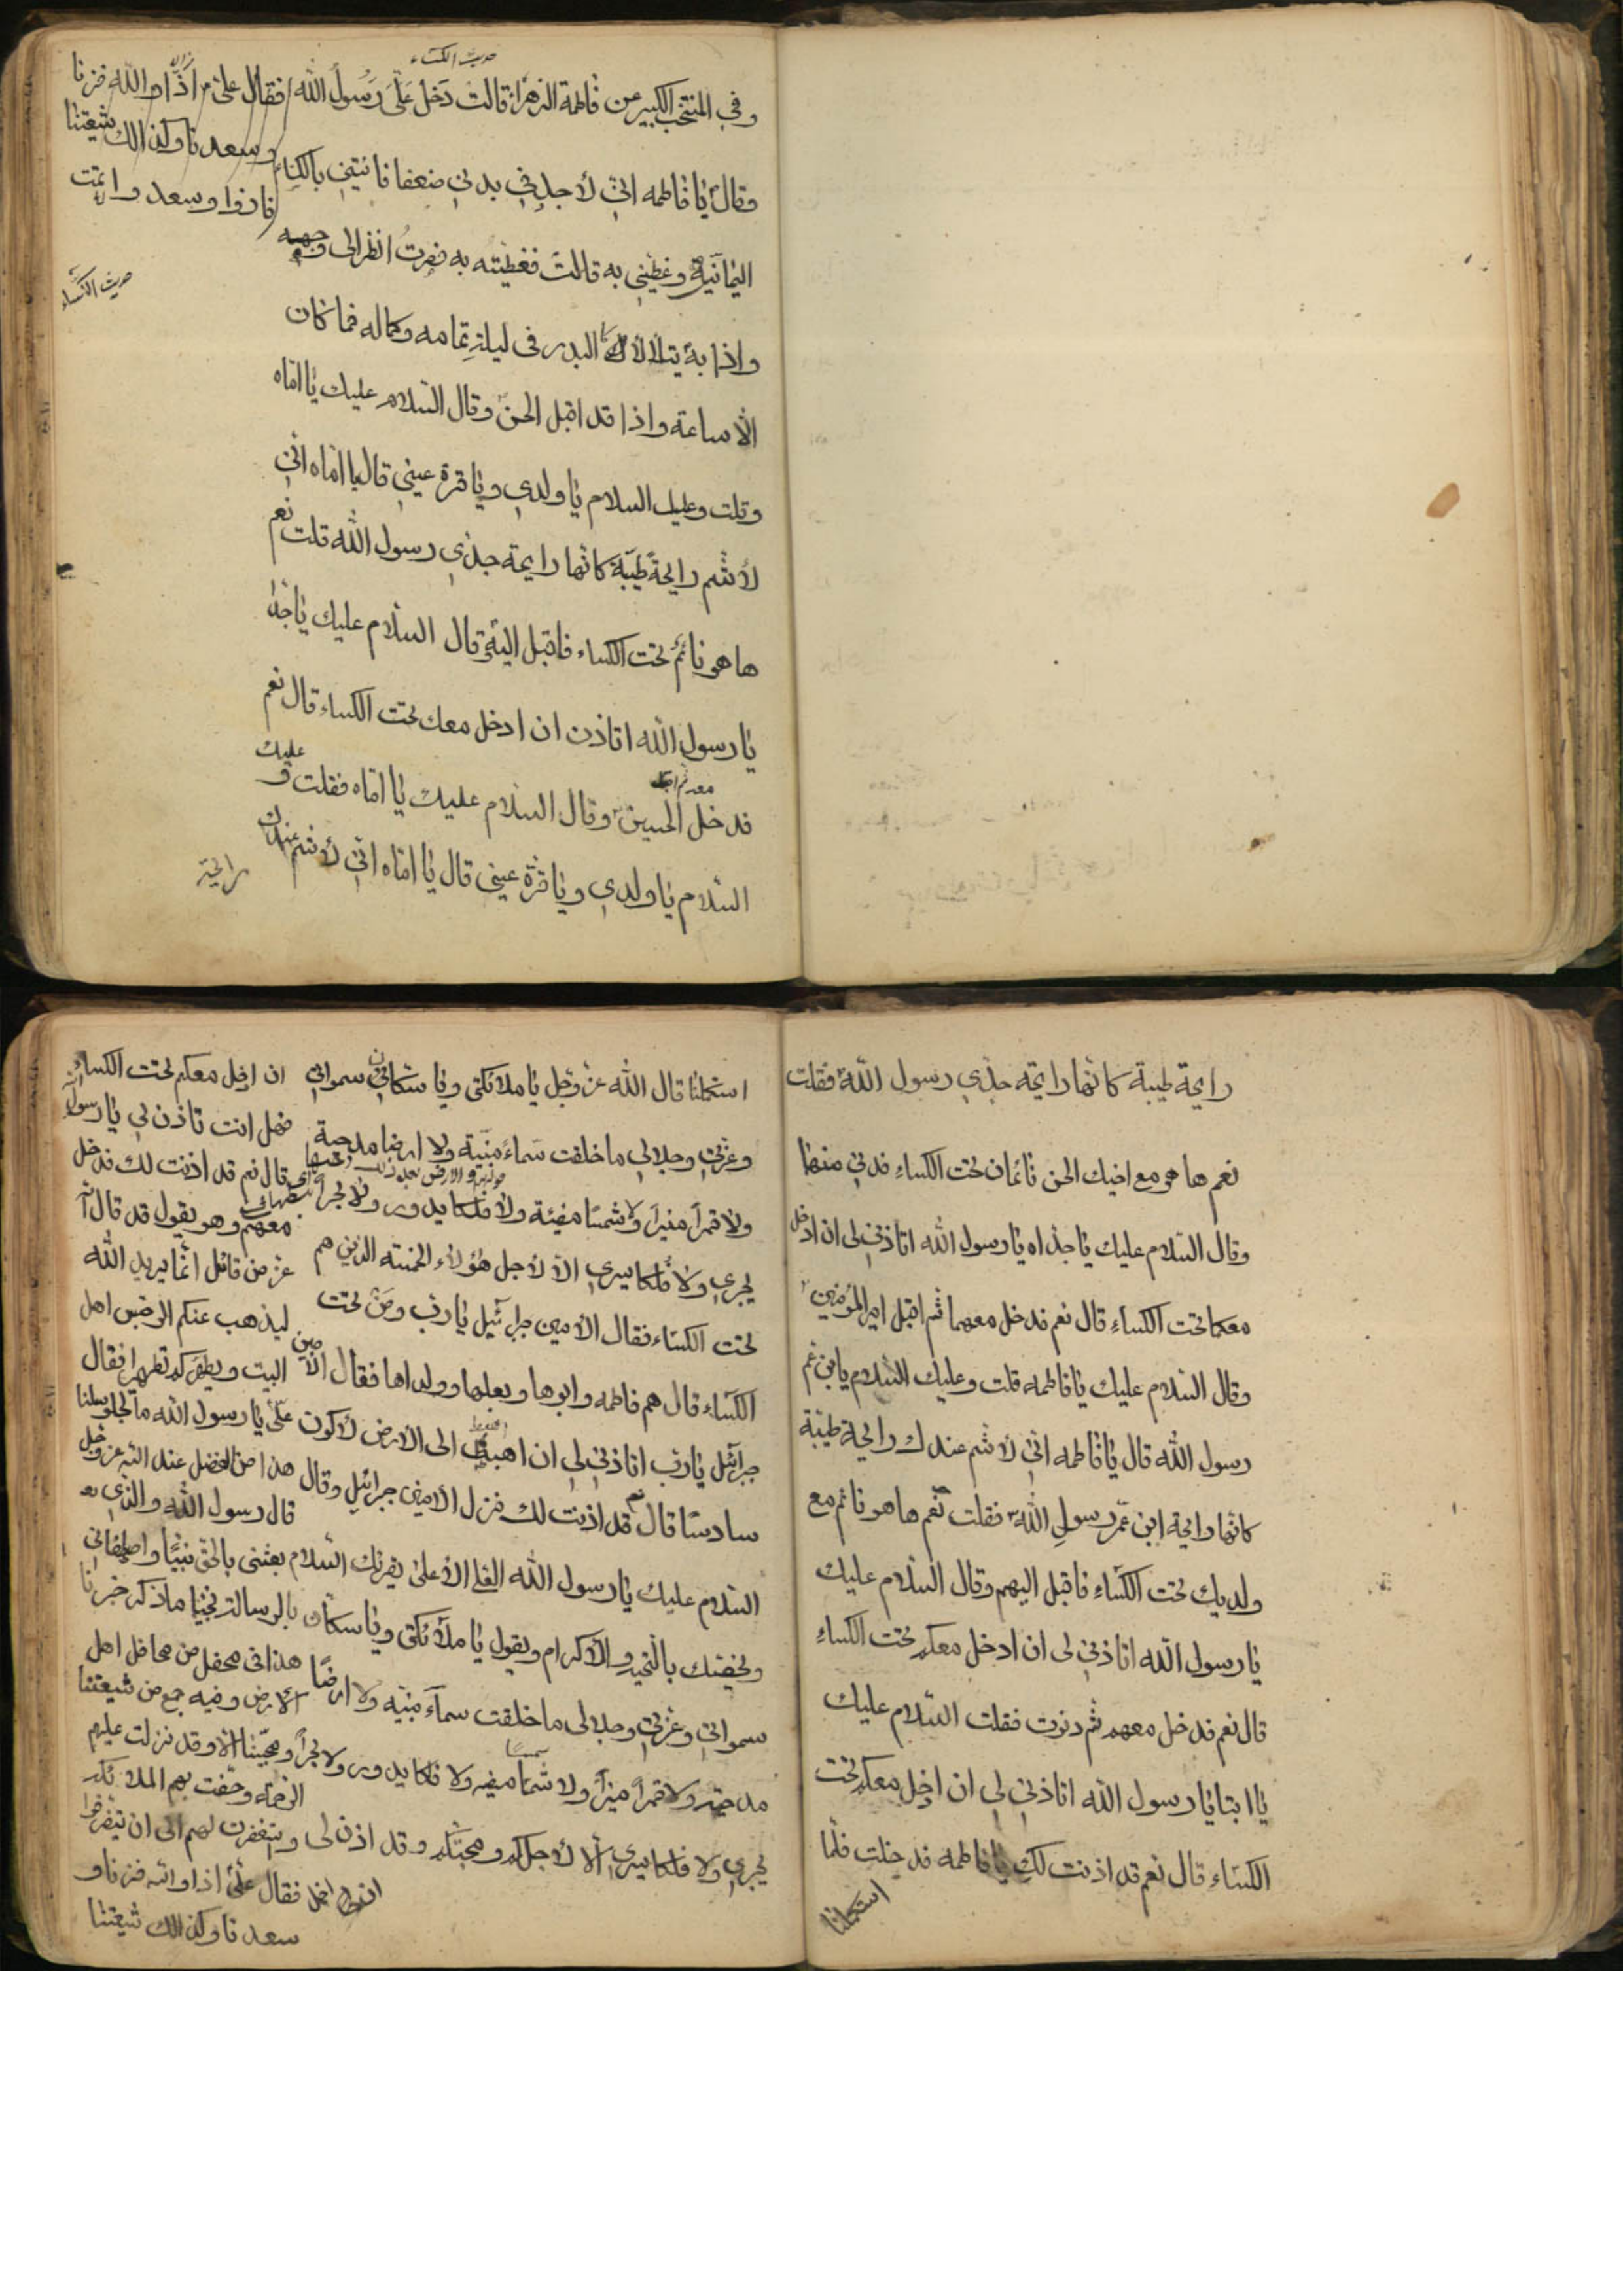 حديث الكساء
وفي المنتخب الكبير عن فاطمة الزهراء قالت دخل علي رسول الله
وقال يا فاطمه اني لاجد في بدني ضعفا فاتيني بالكساء
اليمانية وغطيني به قالت فغطيته به فصرت انظر الى وجهه
واذا به يتلألأ كأنه البدر في ليلة تمامه وكماله فما كان
الا ساعة واذا قد اقبل الحسن وقال السلام عليك يا اماه
وقلت وعليك السلام يا ولدي ويا قرة عيني قال يا اماه اني
لأشم رايحة طيبة كانها رايحة جدي رسول الله قلت نعم
ها هو نائم تحت الكساء فاقبل اليه وقال السلام عليك يا جداه
يا رسول الله اتاذن ان ادخل معك تحت الكساء قال نعم
فدخل معه ثم اقبل الحسين وقال السلام عليك يا اماه فقلت و عليك
السلام يا ولدي ويا قرة عيني قال يا اماه اني لأشم عندك
رايحة
فقال علي اذا والله فزنا
وسعدنا وكذالك شيعتنا
فازوا وسعدوا تمت
حديث الكساء
رايحة طيبة كانها رايحة جدي رسول الله فقلت
نعم ها هو مع اخيك الحسن نائمان تحت الكساء فدنى منهما
وقال السلام عليك يا جداه يا رسول الله اتاذن لي ان ادخل
معكما تحت الكساء قال نعم فدخل معهما ثم اقبل امير المؤمنين
وقال السلام عليك يا فاطمه قلت وعليك السلام يابن عم
رسول الله قال يا فاطمه اني لأشم عندك رايحة طيبة
كانها رايحة ابن عم رسول الله فقلت نعم ها هو نائم مع
ولديك تحت الكساء فاقبل اليهم وقال السلام عليك
يا رسول الله اتاذن لي ان ادخل معكم تحت الكساء
قال نعم فدخل معهم ثم دنوت فقلت السلام عليك
يا ابتا يا رسول الله اتاذن لي ان ادخل معكم تحت
الكساء قال نعم قد اذنت لك يا فاطمه فدخلت فلما
استكملنا
استكملنا قال الله عز وجل يا ملائكتي ويا سكان سمواتي
وعزتي وجلالي ما خلقت سماء مبنية ولا ارضا مدحية
ولا قمرا منيرا ولا شمسا مضيئة ولا فلكا يدور ولا بحرا
يجري ولا فلكا يسري الا لاجل هؤلاء الخمسه الذين هم
تحت الكساء فقال الامين جبرائيل يا رب ومن تحت
الكساء قال هم فاطمه وابوها وبعلها وولداها فقال الامين
جبرائيل يا رب اتاذن لي ان اهبط الى الارض لاكون
سادسا قال نعم قد اذنت لك فنزل الامين جبرائيل وقال
السلام عليك يا رسول الله العلي الأعلى يقرئك السلام
ويخصك بالتحية والاكرام ويقول يا ملائكتي ويا سكان
سمواتي وعزتي وجلالي ما خلقت سماء مبنيه ولا ارضا
مدحية ولا قمرا منيرا ولا شمسا مضيه ولا فلكا يدور ولا بحرا
يجري ولا فلكا يسري الا لاجلكم ومحبتكم وقد اذن لي
ان ادخل معكم تحت الكساء
فهل انت تاذن لي يا رسول الله
قال نعم قد اذنت لك فدخل
معهم وهو يقول قد قال الله
عز من قائل انما يريد الله
ليذهب عنكم الرجس اهل
البيت ويطهركم تطهيرا فقال
علي يا رسول الله ما لجلوسنا
هذا من الفضل عند الله عز وجل
قال رسول الله والذي
بعثني بالحق نبيا واصطفاني
بالرسالة نجيا ما ذكر خبرنا
هذا في محفل من محافل اهل
الارض وفيه جمع من شيعتنا
ومحبينا الا وقد نزلت عليهم
الرحمة وحفت بهم الملائكة
واستغفرت لهم الى ان يتفرقوا
فقال علي اذا والله فزنا و
سعدنا وكذالك شيعتنا